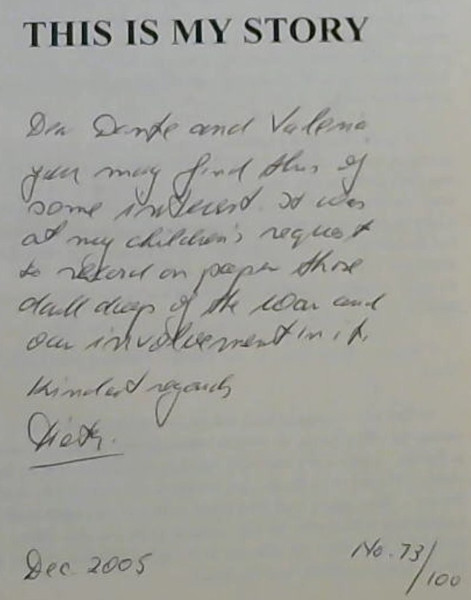 THIS IS MY STORY
Dea Dante and Valeria
you may find this of
some interest. It was
at my children's request
to record on paper those
dark days of the war and
our involvement in it.
Kindest regards
Dec. 2005
No. 73/100